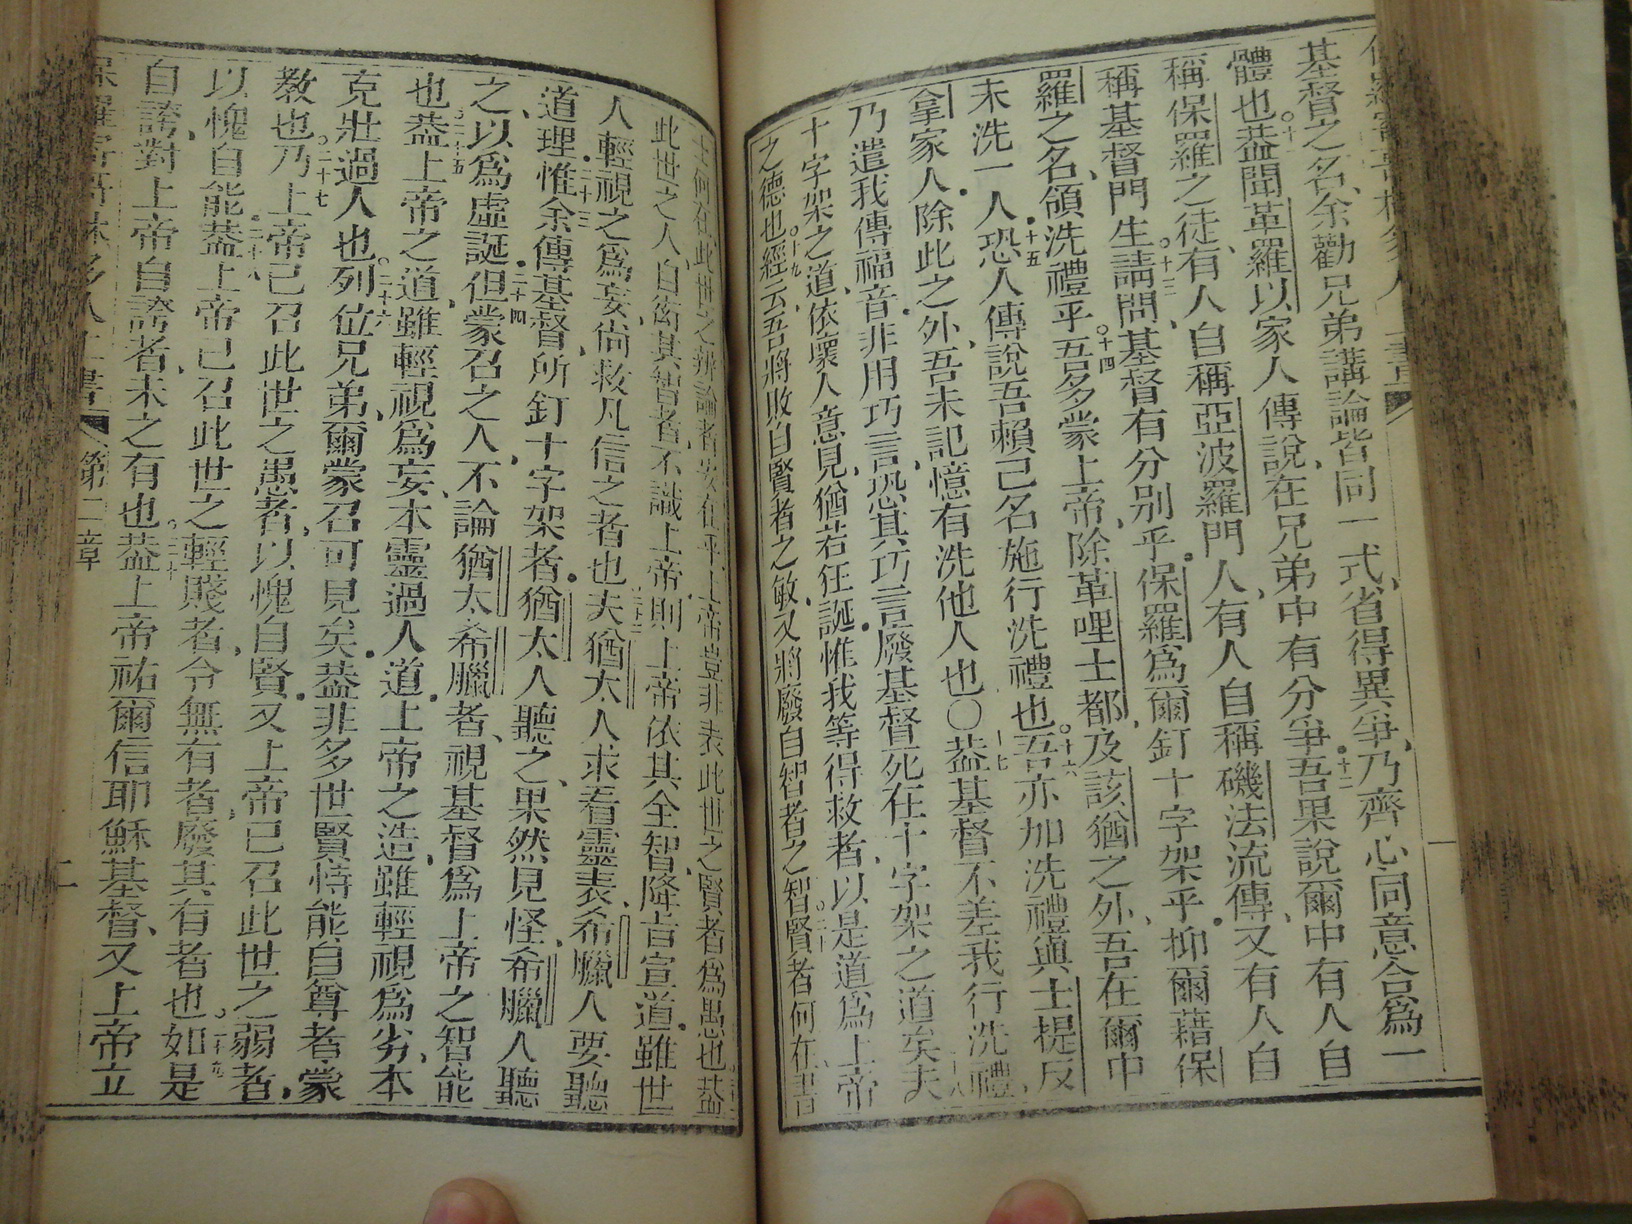 基督之名、余勸兄弟講論皆同一式、省得異爭、乃齊心同意合爲一
體也○十一蓋聞革羅以家人傳說、在兄弟中有分爭十二吾果說爾中有人自
稱保羅之徒、有人自稱亞波羅門人、有人自稱磯法流傳、又有人自
稱基督門生○十三請問、基督有分別乎、保羅爲爾釘十字架乎、抑爾藉保
羅之名、領洗禮乎○十四吾多蒙上帝、除革哩士都、及該猶之外、吾在爾中
未洗一人十五恐人傳說吾賴己名施行洗禮也○十六吾亦加洗禮與士提反
拿家人、除此之外、吾未記憶有洗他人也○十七蓋基督不差我行洗禮、
乃遣我傳福音、非用巧言、恐其巧言廢基督死在十字架之道矣十八夫
十字架之道、依壞人意見、猶若狂誕、惟我等得救者、以是道爲上帝
之德也○十九經云、吾將敗自賢者之敏、又將廢自智者之智○二十賢者何在、書
士何在、此世之辨論者安在乎、上帝豈非表此世之賢者爲愚也蓋
此世之人、自衒其智者、不識上帝、則上帝依其全智、降旨宣道、雖世
人輕視之爲妄、尚救凡信之者也二十二夫猶太人求看靈表、希臘人要聽
道理二十三惟余傳基督、所釘十字架者、猶太人聽之、果然見怪、希臘人聽
之、以爲虛誕二十四但蒙召之人、不論猶太希臘者、視基督爲上帝之智能
也○二十五蓋上帝之道、雖輕視爲妄、本靈過人道、上帝之造、雖輕視爲劣、本
克壯過人也○二十六列位兄弟、爾蒙召可見矣、蓋非多世賢恃能自尊者、蒙
教也○二十七乃上帝已召此世之愚者、以愧自賢、又上帝已召此世之弱者、
以愧自能二十八蓋上帝已召此世之輕賤者、令無有者、廢其有者也○二十九如是
自誇、對上帝自誇者、未之有也○三十蓋上帝祐爾信耶穌基督、又上帝立
第一章
二